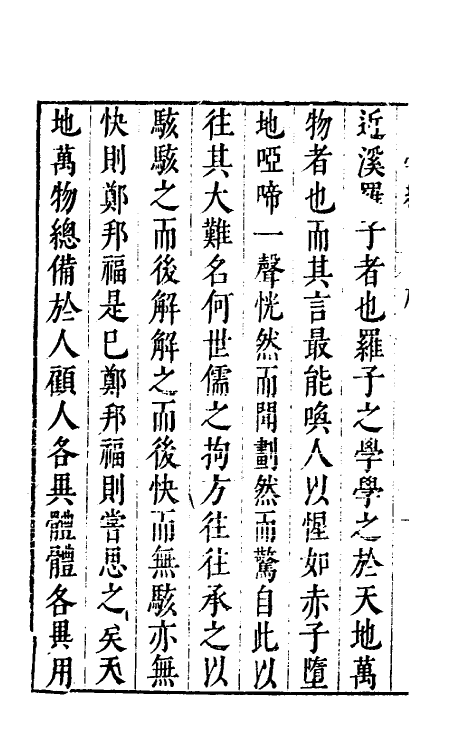 近溪羅子者也羅子之學學之於天地萬
物者也而其言最能喚人以惺如赤子墮
地啞啼一聲恍然而聞劃然而驚自此以
往其大難名何世儒之拘方往往承之以
駭駭之而後解解之而後快而無駭亦無
快則鄭邦福是已鄭邦福則嘗思之矣天
地萬物總備於人顧人各異體體各異用